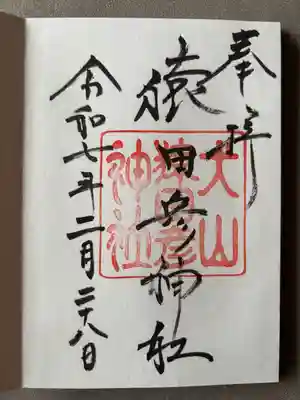 奉拝
猿田彦神社
令和七年二月二十八日
大山
猿田彦
神社